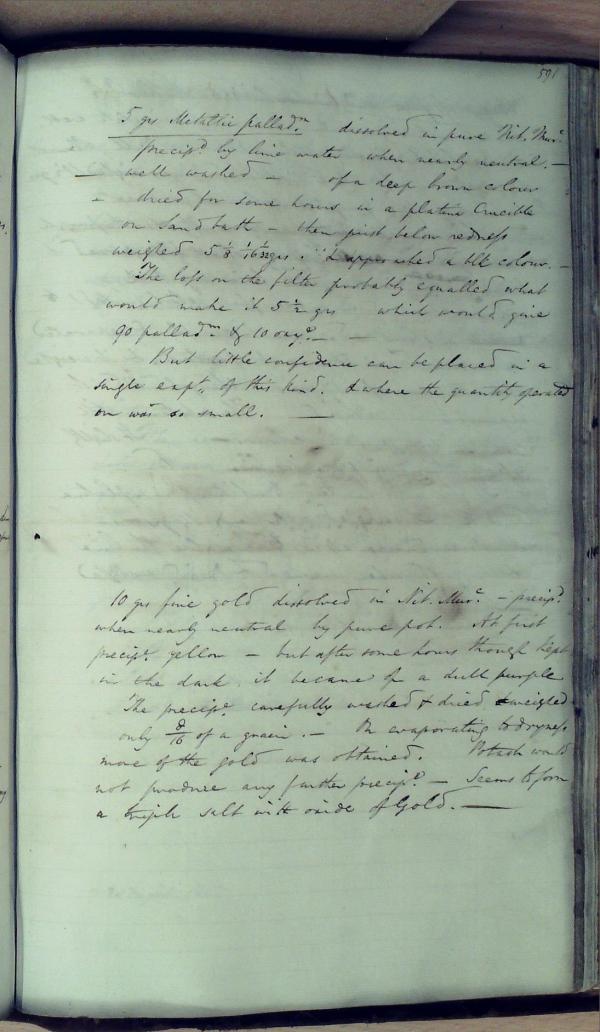 591
5 grs Metallic pallad.m dissolved in pure Nit. Mur.c
precip.d by lime water when nearly neutral. —
— well washed — of a deep brown colour
– dried for some hours in a platina Crucible
on Sand bath – then just below redness
weighed 5 1/8 1/16 1/32 grs. & approached a blk colour. –
The loss on the filter probably equalled what
would make it 5 1/2 grs which would give
90 pallad.m & 10 oxy.n — —
But little confidence can be placed in a
single expt. of this kind. & where the quantity operated
on was so small. —
10 grs fine gold dissolved in Nit. Mur.c – precip.d
when nearly neutral by pure pot. At first
precip.e yellow – but after some hours though kept
in the dark it became of a dull purple
The precip.e carefully washed & dried & weighed
only /16 of a grain. — On evaporating to dryness
more of the gold was obtained. Potash would
not produce any further precip.e — Seems to form
a triple salt with oxide of Gold. —